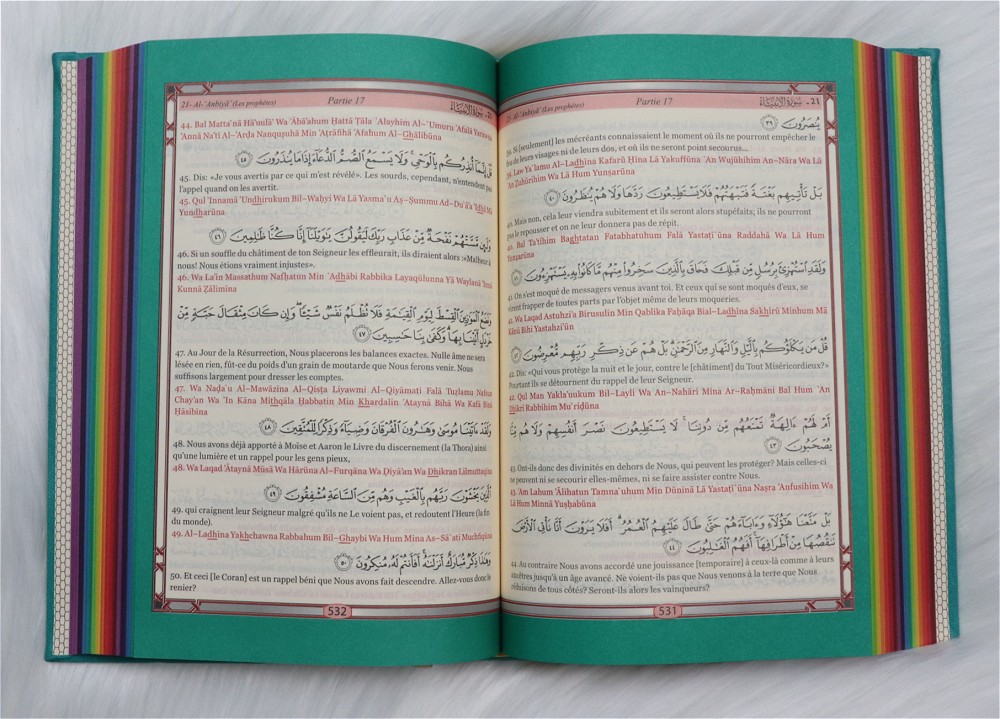 21- Al-ʾAnbiyāʾ (Les prophètes) Partie 17 ٢١- سُورَةُ الأَنبِيَاء
يُنصَرُونَ ٣٩
39. Si [seulement] les mécréants connaissaient le moment où ils ne pourront empêcher le
feu de leurs visages ni de leurs dos, et où ils ne seront point secourus...
39. Law Yaʿlamu Al–Ladhīna Kafarū Ĥīna Lā Yakuffūna ʿAn Wujūhihim An–Nāra Wa Lā
ʿAn Žuhūrihim Wa Lā Hum Yunşarūna
بَلْ تَأْتِيهِم بَغْتَةً فَتَبْهَتُهُمْ فَلَا يَسْتَطِيعُونَ رَدَّهَا وَلَا هُمْ يُنظَرُونَ ٤٠
40. Mais non, cela leur viendra subitement et ils seront alors stupéfaits; ils ne pourront
pas le repousser et on ne leur donnera pas de répit.
40. Bal Taʾtīhim Baghtatan Fatabhatuhum Falā Yastaţīʿūna Raddahā Wa Lā Hum
Yunžarūna
وَلَقَدِ ٱسْتُهْزِئَ بِرُسُلٍ مِّن قَبْلِكَ فَحَاقَ بِٱلَّذِينَ سَخِرُوا۟ مِنْهُم مَّا كَانُوا۟ بِهِۦ يَسْتَهْزِءُونَ ٤١
41. On s'est moqué de messagers venus avant toi. Et ceux qui se sont moqués d'eux, se
virent frapper de toutes parts par l'objet même de leurs moqueries.
41. Wa Laqad Astuhziʾa Birusulin Min Qablika Faĥāqa Bial–Ladhīna Sakhirū Minhum Mā
Kānū Bihi Yastahziʾūn
قُلْ مَن يَكْلَؤُكُم بِٱلَّيْلِ وَٱلنَّهَارِ مِنَ ٱلرَّحْمَٰنِ ۗ بَلْ هُمْ عَن ذِكْرِ رَبِّهِم مُّعْرِضُونَ ٤٢
42. Dis: «Qui vous protège la nuit et le jour, contre le [châtiment] du Tout Miséricordieux?»
Pourtant ils se détournent du rappel de leur Seigneur.
42. Qul Man Yaklaʾuukum Bil–Layli Wa An–Nahāri Mina Ar–Raĥmāni Bal Hum ʿAn
Dhikri Rabbihim Muʿriđūna
أَمْ لَهُمْ ءَالِهَةٌ تَمْنَعُهُم مِّن دُونِنَا ۚ لَا يَسْتَطِيعُونَ نَصْرَ أَنفُسِهِمْ وَلَا هُم مِّنَّا
يُصْحَبُونَ ٤٣
43. Ont-ils donc des divinités en dehors de Nous, qui peuvent les protéger? Mais celles-ci
ne peuvent ni se secourir elles-mêmes, ni se faire assister contre Nous.
43. ʾAm Lahum ʾĀlihatun Tamnaʿuhum Min Dūninā Lā Yastaţīʿūna Naşra ʾAnfusihim Wa
Lā Hum Minnā Yuşĥabūna
بَلْ مَتَّعْنَا هَٰٓؤُلَآءِ وَءَابَآءَهُمْ حَتَّىٰ طَالَ عَلَيْهِمُ ٱلْعُمُرُ ۗ أَفَلَا يَرَوْنَ أَنَّا نَأْتِى ٱلْأَرْضَ
نَنقُصُهَا مِنْ أَطْرَافِهَآ ۚ أَفَهُمُ ٱلْغَٰلِبُونَ ٤٤
44. Au contraire Nous avons accordé une jouissance [temporaire] à ceux-là comme à leurs
ancêtres jusqu'à un âge avancé. Ne voient-ils pas que Nous venons à la terre que Nous
réduisons de tous côtés? Seront-ils alors les vainqueurs?
531
21- Al-ʾAnbiyāʾ (Les prophètes) Partie 17 ٢١- سُورَةُ الأَنبِيَاء
44. Bal Mattaʿnā Hāʾuulāʾ Wa ʾĀbāʾahum Ĥattá Ţāla ʿAlayhim Al–ʿUmuru ʾAfalā Yarawna
ʾAnnā Naʾti Al–ʾArđa Nanquşuhā Min ʾAţrāfihā ʾAfahum Al–Ghālibūna
قُلْ إِنَّمَآ أُنذِرُكُم بِٱلْوَحْىِ ۚ وَلَا يَسْمَعُ ٱلصُّمُّ ٱلدُّعَآءَ إِذَا مَا يُنذَرُونَ ٤٥
45. Dis: «Je vous avertis par ce qui m'est révélé». Les sourds, cependant, n'entendent pas
l'appel quand on les avertit.
45. Qul ʾInnamā ʾUndhirukum Bil–Waĥyi Wa Lā Yasmaʿu Aş–Şummu Ad–Duʿāʾa ʾIdhā Mā
Yundharūna
وَلَئِن مَّسَّتْهُمْ نَفْحَةٌ مِّنْ عَذَابِ رَبِّكَ لَيَقُولُنَّ يَٰوَيْلَنَآ إِنَّا كُنَّا ظَٰلِمِينَ ٤٦
46. Si un souffle du châtiment de ton Seigneur les effleurait, ils diraient alors :«Malheur à
nous! Nous étions vraiment injustes».
46. Wa Laʾin Massathum Nafĥatun Min ʿAdhābi Rabbika Layaqūlunna Yā Waylanā ʾInnā
Kunnā Žālimīna
وَنَضَعُ ٱلْمَوَٰزِينَ ٱلْقِسْطَ لِيَوْمِ ٱلْقِيَٰمَةِ فَلَا تُظْلَمُ نَفْسٌ شَيْـًٔا ۖ وَإِن كَانَ مِثْقَالَ حَبَّةٍ مِّنْ
خَرْدَلٍ أَتَيْنَا بِهَا ۗ وَكَفَىٰ بِنَا حَٰسِبِينَ ٤٧
47. Au Jour de la Résurrection, Nous placerons les balances exactes. Nulle âme ne sera
lésée en rien, fût-ce du poids d'un grain de moutarde que Nous ferons venir. Nous
suffisons largement pour dresser les comptes.
47. Wa Nađaʿu Al–Mawāzīna Al–Qisţa Liyawmi Al–Qiyāmati Falā Tužlamu Nafsun
Chayʾan Wa ʾIn Kāna Mithqāla Ĥabbatin Min Khardalin ʾAtaynā Bihā Wa Kafá Binā
Ĥāsibīna
وَلَقَدْ ءَاتَيْنَا مُوسَىٰ وَهَٰرُونَ ٱلْفُرْقَانَ وَضِيَآءً وَذِكْرًا لِّلْمُتَّقِينَ ٤٨
48. Nous avons déjà apporté à Moïse et Aaron le Livre du discernement (la Thora) ainsi
qu'une lumière et un rappel pour les gens pieux,
48. Wa Laqad ʾĀtaynā Mūsá Wa Hārūna Al–Furqāna Wa Điyāʾan Wa Dhikran Lilmuttaqīna
ٱلَّذِينَ يَخْشَوْنَ رَبَّهُم بِٱلْغَيْبِ وَهُم مِّنَ ٱلسَّاعَةِ مُشْفِقُونَ ٤٩
49. qui craignent leur Seigneur malgré qu'ils ne Le voient pas, et redoutent l'Heure (la fin
du monde).
49. Al–Ladhīna Yakhchawna Rabbahum Bil–Ghaybi Wa Hum Mina As–Sāʿati Muchfiqūna
وَهَٰذَا ذِكْرٌ مُّبَارَكٌ أَنزَلْنَٰهُ ۚ أَفَأَنتُمْ لَهُۥ مُنكِرُونَ ٥٠
50. Et ceci [le Coran] est un rappel béni que Nous avons fait descendre. Allez-vous donc le
renier?
532